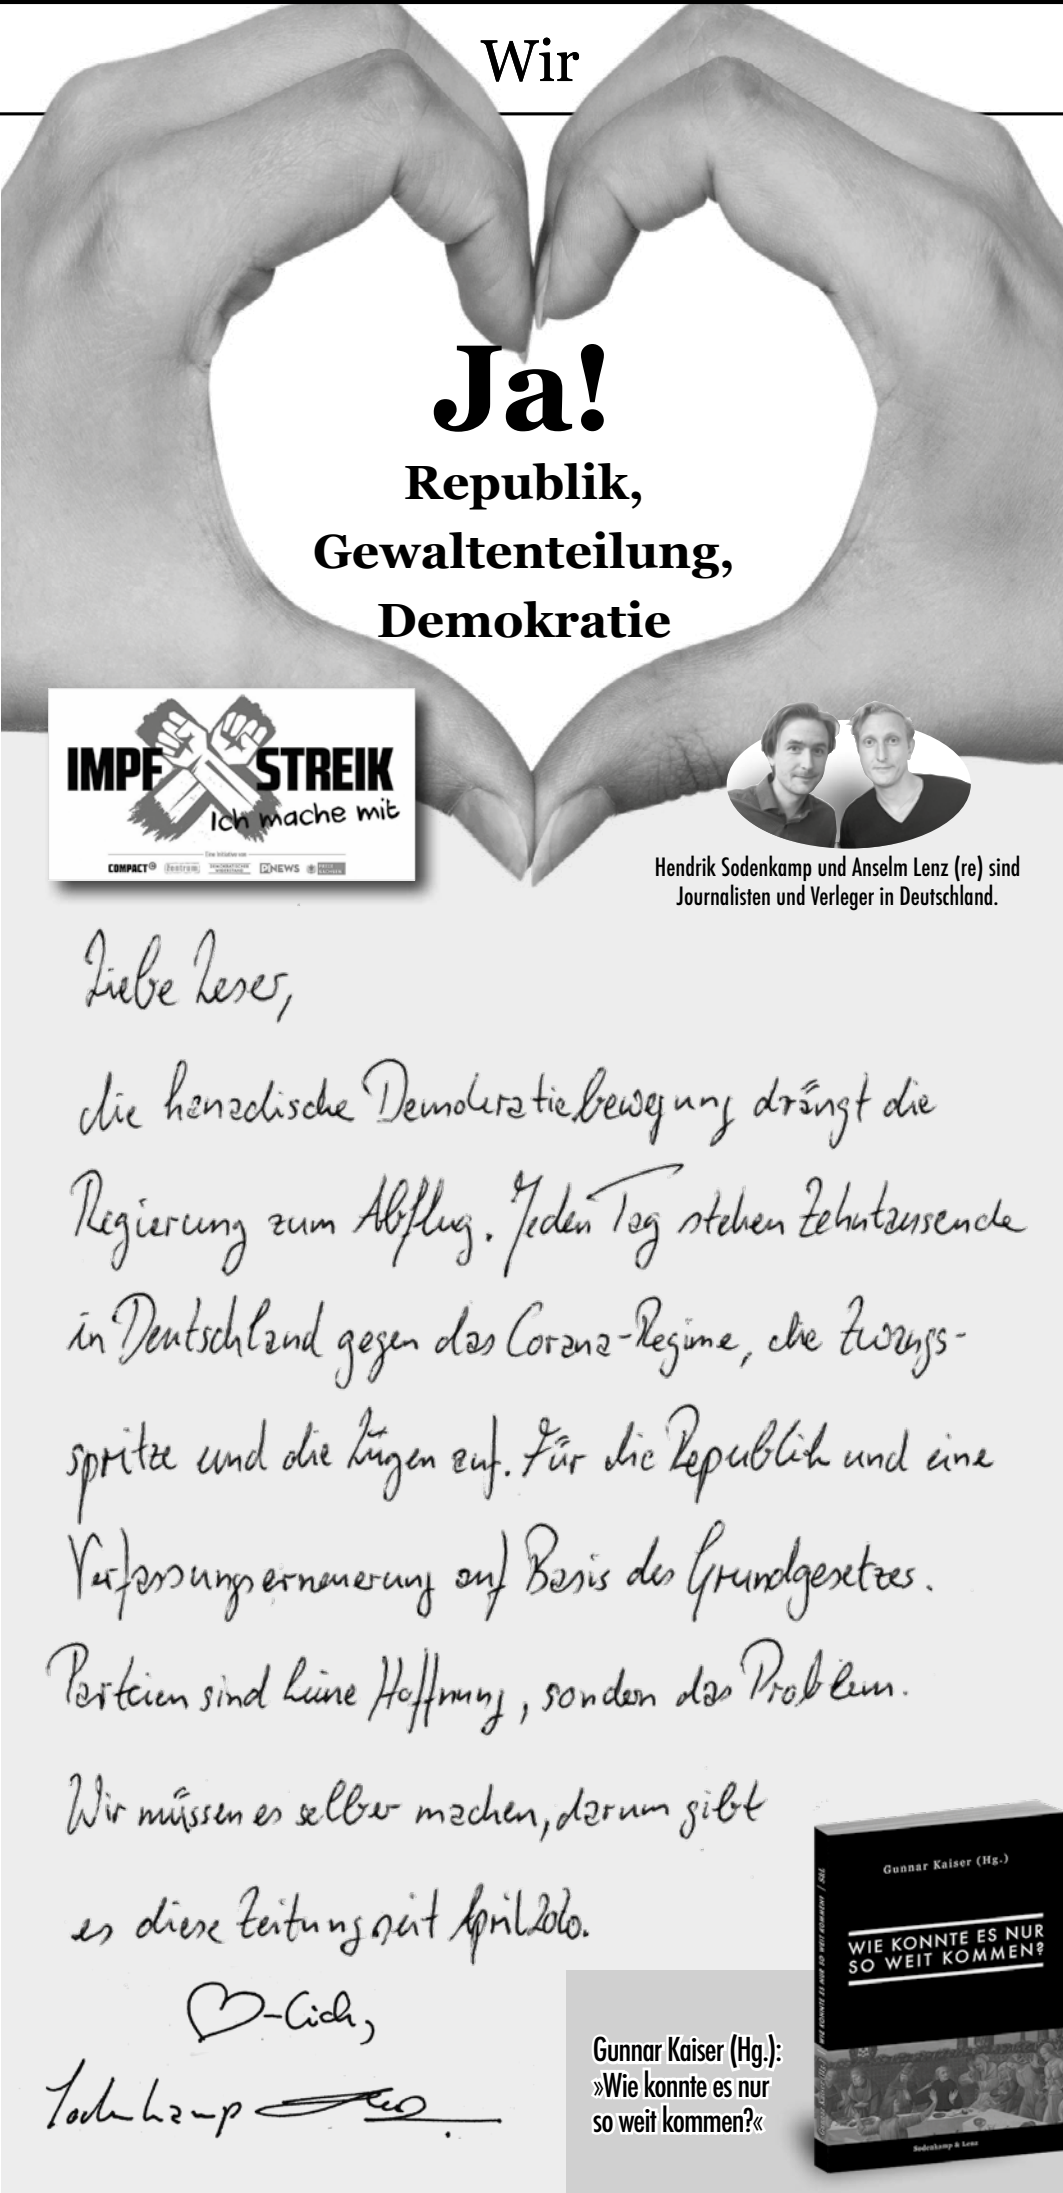 Wir
Ja!
Republik,
Gewaltenteilung,
Demokratie
IMPF STREIK
Ich mache mit
Eine Initiative von
COMPACT Zentrum DEMOKRATISCHER WIDERSTAND PI NEWS FREIE SACHSEN
Hendrik Sodenkamp und Anselm Lenz (re) sind
Journalisten und Verleger in Deutschland.
Liebe Leser,
die kanadische Demokratiebewegung drängt die
Regierung zum Abflug. Jeden Tag stehen Zehntausende
in Deutschland gegen das Corona-Regime, die Zwangs-
spritze und die Lügen auf. Für die Republik und eine
Verfassungserneuerung auf Basis des Grundgesetzes.
Parteien sind keine Hoffnung, sondern das Problem.
Wir müssen es selber machen, darum gibt
es diese Zeitung seit April 2020.
♡-lich,
Sodenkamp
Gunnar Kaiser (Hg.):
»Wie konnte es nur
so weit kommen?«
Gunnar Kaiser (Hg.)
WIE KONNTE ES NUR
SO WEIT KOMMEN?
Sodenkamp & Lenz